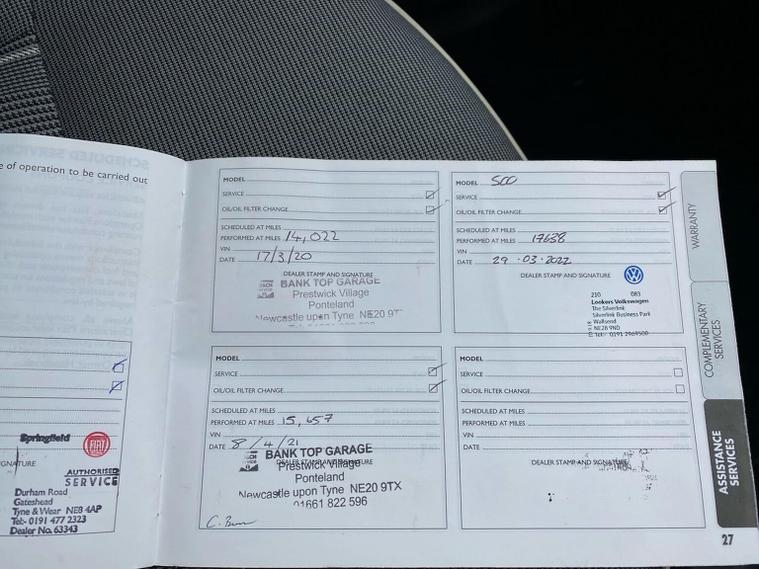 e of operation to be carried out
Springfield
FIAT
GNATURE
AUTHORISED
SERVICE
Durham Road
Gateshead
Tyne & Wear NE8 4AP
Tel:- 0191 477 2323
Dealer No. 63343
MODEL
SERVICE
OIL/OIL FILTER CHANGE
SCHEDULED AT MILES
PERFORMED AT MILES 14,022
VIN
DATE 17/3/20
DEALER STAMP AND SIGNATURE
BANK TOP GARAGE
Prestwick Village
Ponteland
Newcastle upon Tyne NE20 9T
MODEL 500
SERVICE
OIL/OIL FILTER CHANGE
SCHEDULED AT MILES
PERFORMED AT MILES 17638
VIN
DATE 29.03.2022
DEALER STAMP AND SIGNATURE
210 083
Lookers Volkswagen
The Silverlink
Silverlink Business Park
Wallsend
NE28 9ND
Tel:- 0191 2969500
MODEL
SERVICE
OIL/OIL FILTER CHANGE
SCHEDULED AT MILES
PERFORMED AT MILES 15,657
VIN
DATE 8/4/21
BANK TOP GARAGE
DEALER STAMP AND SIGNATURE
Prestwick Village
Ponteland
Newcastle upon Tyne NE20 9TX
01661 822 596
MODEL
SERVICE
OIL/OIL FILTER CHANGE
SCHEDULED AT MILES
PERFORMED AT MILES
VIN
DATE
DEALER STAMP AND SIGNATURE
WARRANTY
COMPLEMENTARY
SERVICES
ASSISTANCE
SERVICES
27